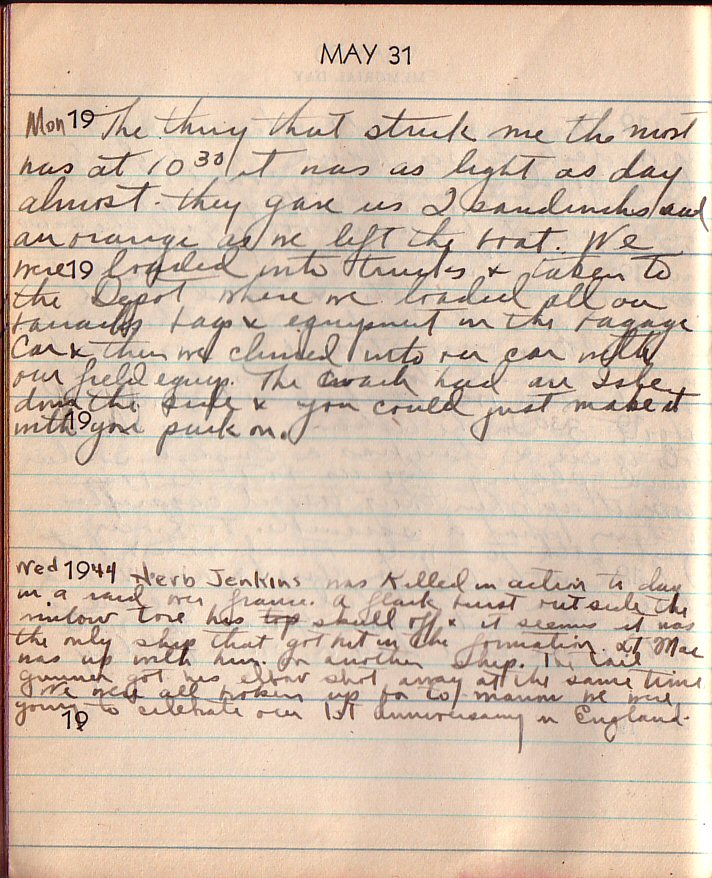 MAY 31
Mon 19 The thing that struck me the most
was at 10 30 it was as light as day
almost. they gave us 2 sandwichs and
an orange as we left the boat. We
were 19 loaded into trucks & taken to
the Depot where we loaded all our
barracks bags & equipment in the bagage
Car & then we climed into our car with
our field equip. The coach had an Isle
down the side & you could just make it
with 19 your pack on.
Wed 1944 Herb Jenkins was Killed in action to day
in a raid over france. A flack burst outside the
window tore his top skull off & it seems it was
the only ship that got hit in the formation. Lt Mac
was up with him. In another ship. The tail
gunner got his elbow shot away at the same time
We were all broken up for to-morrow we were
going to celebrate our 1st anniversary in England.
19